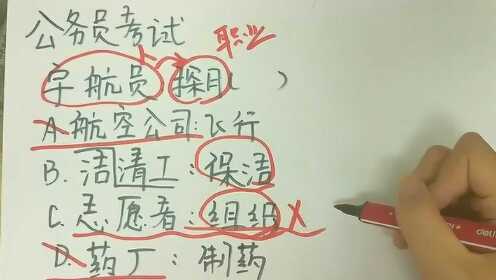 公务员考试
职业
宇航员 探月( )
A.航空公司:飞行
B.清洁工:保洁
C.志愿者:组织
D.药厂:制药
deli